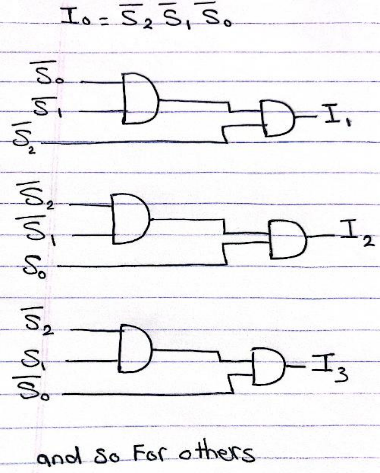 I₀ = S̅₂ S̅₁ S̅₀
S̅₀
S̅₁
S̅₂
I₁
S̅₂
S̅₁
S₀
I₂
S̅₂
S₁
S̅₀
I₃
and so For others